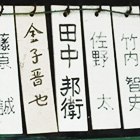 竹内 智
佐野 太
田中 邦衛
金子 晋也
誠